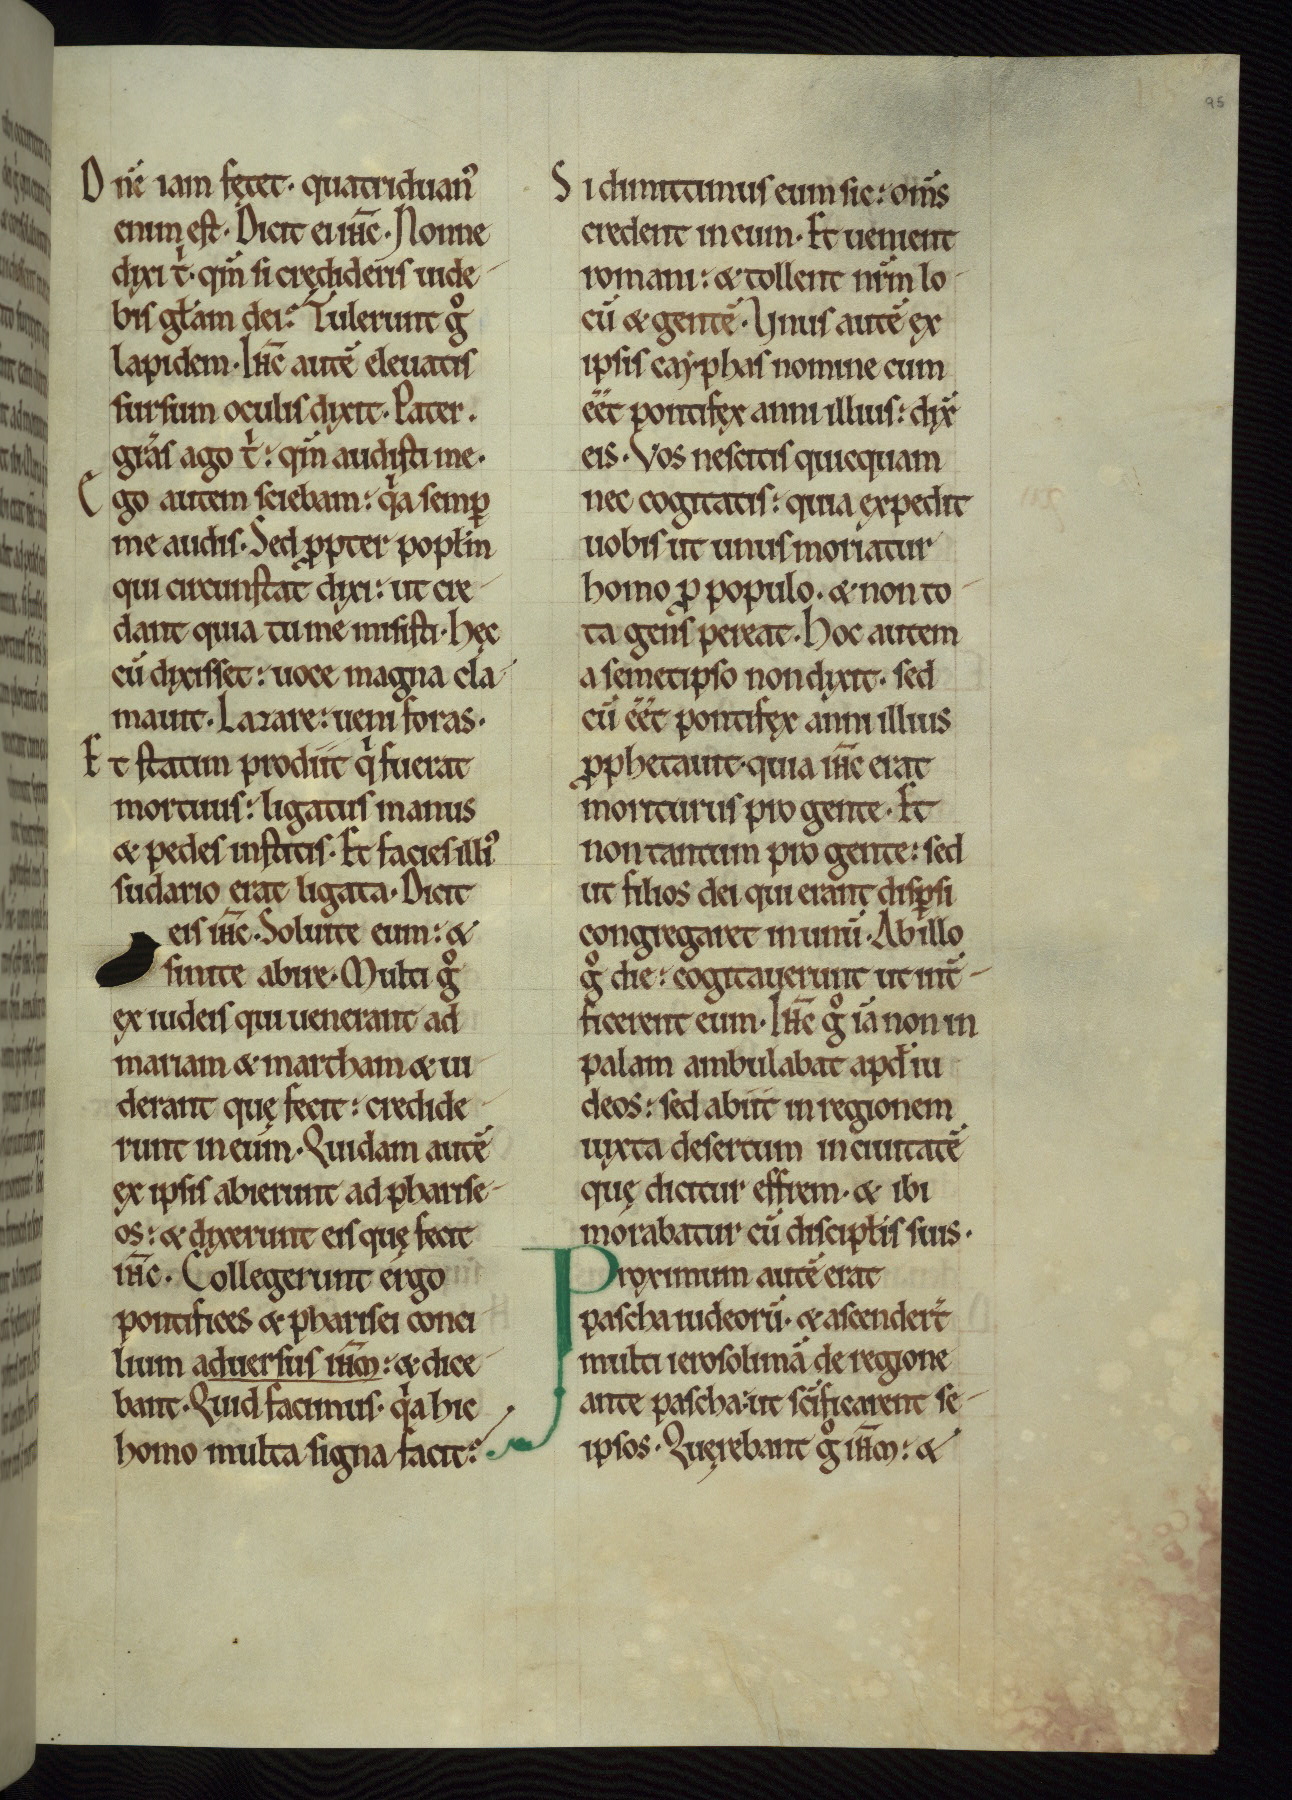 95
Dn̄e iam fętet. quatriduanꝰ
enim est. Dicit ei ih̄c. Nonne
dixi t̍. qm̄ si credideris uide
bis gł̄am dei: Tulerunt g̊
lapidem. Ih̄c autē eleuatis
sursum oculis dixit. Pater.
gr̄as ago t̍: qm̄ audisti me.
Ego autem sciebam: q̍a semꝑ
me audis. Sed ꝓpter popłm
qui circunstat dixi: ut cre
dant quia tu me misisti. Hęc
cū dixisset: uoce magna cla
mauit. Lazare: ueni foras.
Et statim prodiit q̍ fuerat
mortuus: ligatus manus
& pedes institis. Et facies illiꝰ
sudario erat ligata. Dicit
eis ih̄c. Soluite eum: &
sinite abire. Multi g̊
ex iudeis qui uenerant ad
mariam & martham & ui
derant quę fecit: credide
runt in eum. Quidam autē
ex ipsis abierunt ad pharise
os: & dixerunt eis quę fecit
ih̄c. Collegerunt ergo
pontifices & pharisei conci
lium aduersus ih̄m: & dice
bant. Quid facimus. q̍a hic
homo multa signa facit:
Si dimittimus eum sic: om̄s
credent in eum. Et uenient
romani: & tollent nr̄m lo
cū & gentē. Unus autē ex
ipsis cayphas nomine cum
eēt pontifex anni illius: dix̄
eis. Vos nescitis quicquam
nec cogitatis: quia expedit
uobis ut unus moriatur
homo ꝓ populo. & non to
ta gens pereat. Hoc autem
a semetipso non dixit. sed
cū eēt pontifex anni illius
ꝓphetauit. quia ih̄c erat
moriturus pro gente. Et
non tantum pro gente: sed
ut filios dei qui erant disꝑsi
congregaret in unū. Ab illo
g̊ die: cogitauerunt ut int̄
ficerent eum. Ih̄c g̊ iā non in
palam ambulabat apđ iu
deos: sed abiit in regionem
iuxta desertum in ciuitatē
quę dicitur effrem. & ibi
morabatur cū discipłis suis.
Proximum autē erat
pascha iudeorū. & ascender̄t
multi ierosolimā de regione
ante pascha: ut sc̄ificarent se
ipsos. Quęrebant g̊ ih̄m: &